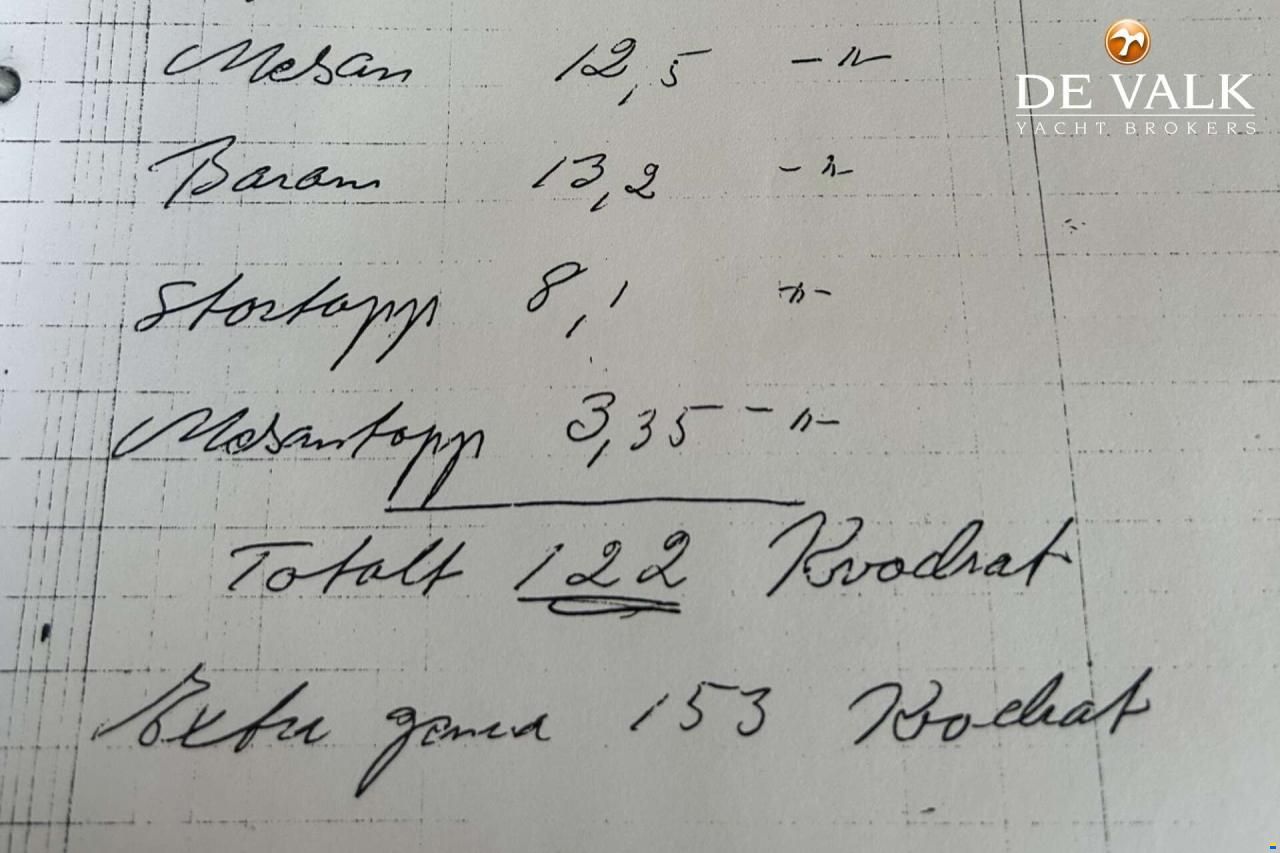 Mesan 12,5 - " -
DE VALK
YACHT BROKERS
Baram 13,2 - " -
Stortopp 8,1 - " -
Mesantopp 3,35 - " -
Totalt 122 Kvadrat
Extra genua 153 Kvadrat